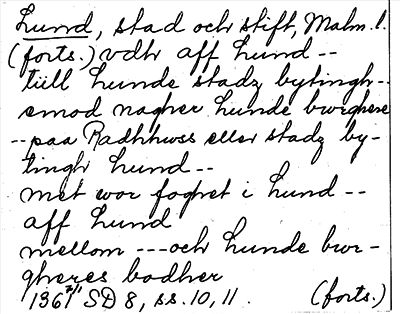 Lund, stad och stift, Malm. l.
(forts.) vdtr aff lund --
tüll lunde stadz bytingh--
emod nagher lunde bwrghere
--paa Radhhwss eller stadz by-
tingh lund--
met wor foghet i lund --
aff lund
mellom ---och lunde bwr-
gheres bodher
1361 7/1 SD 8, ss. 10, 11. (forts.)